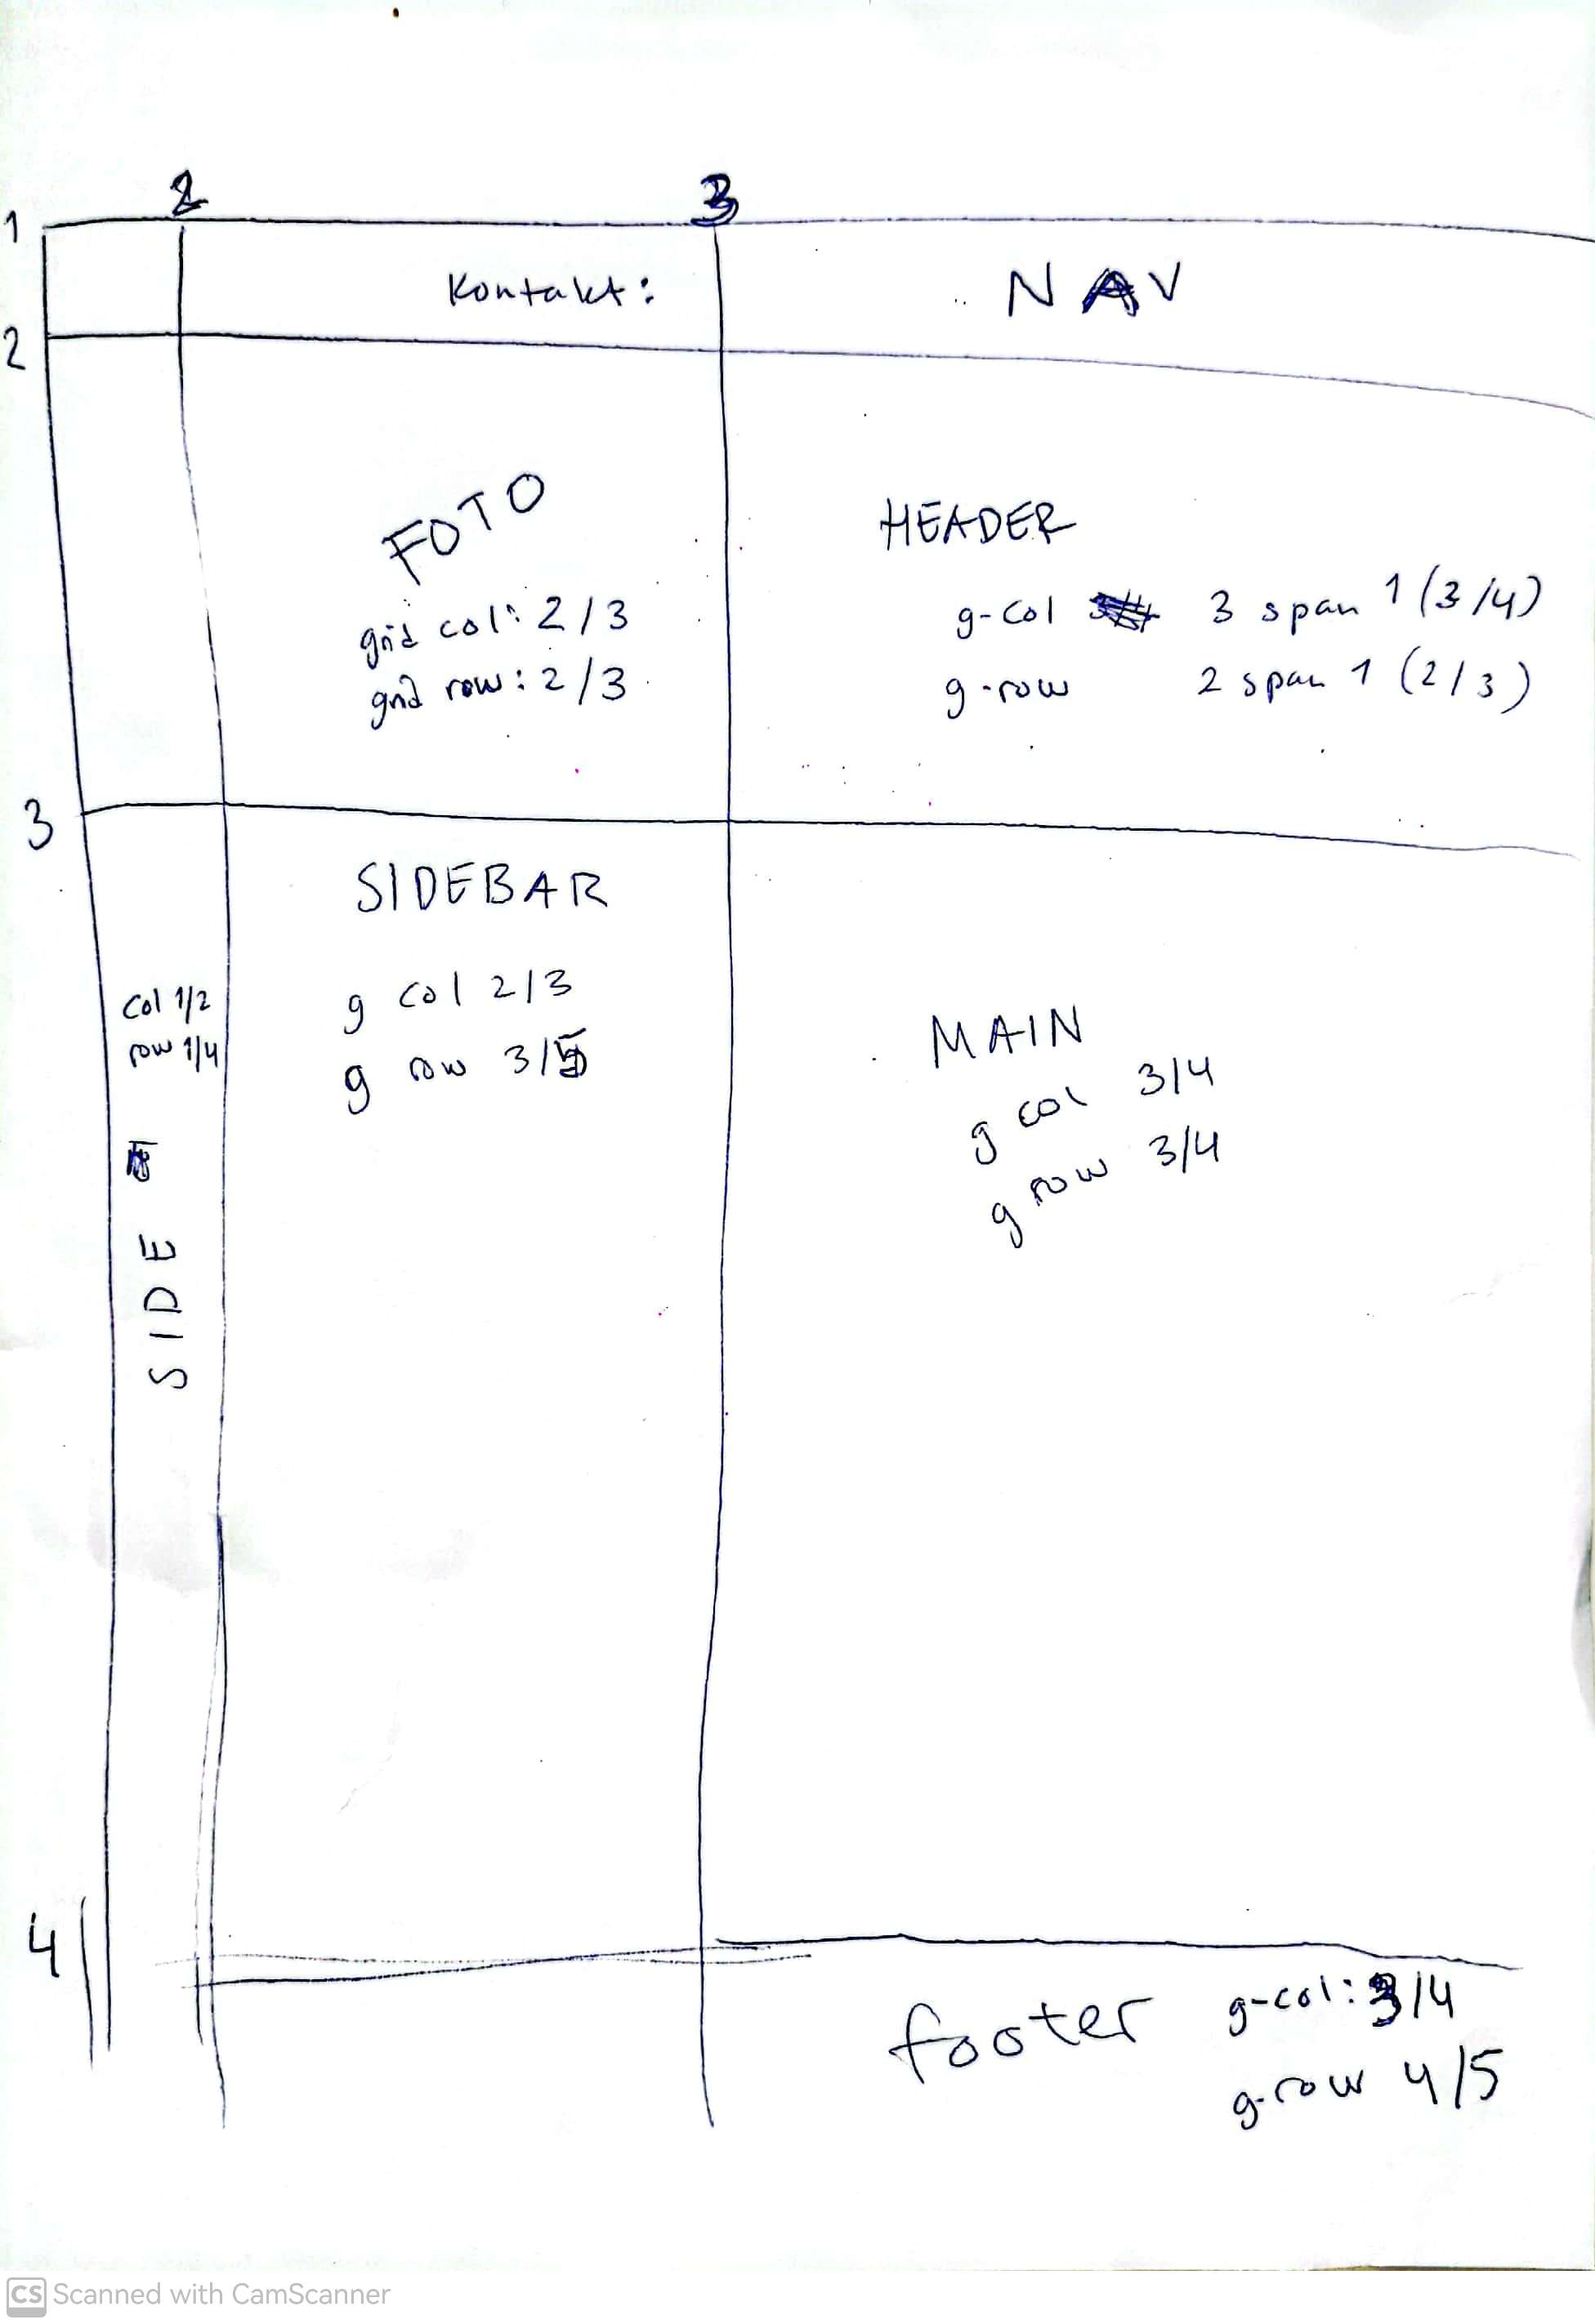 2
3
1
Kontakt:
NAV
2
FOTO
grid col: 2/3
grid row: 2/3
HEADER
g-col 3 span 1 (3/4)
g-row 2 span 1 (2/3)
3
SIDEBAR
g col 2/3
g row 3/5
col 1/2
row 1/4
SIDE
MAIN
g col 3/4
g row 3/4
4
footer g-col: 3/4
g-row 4/5
CS Scanned with CamScanner